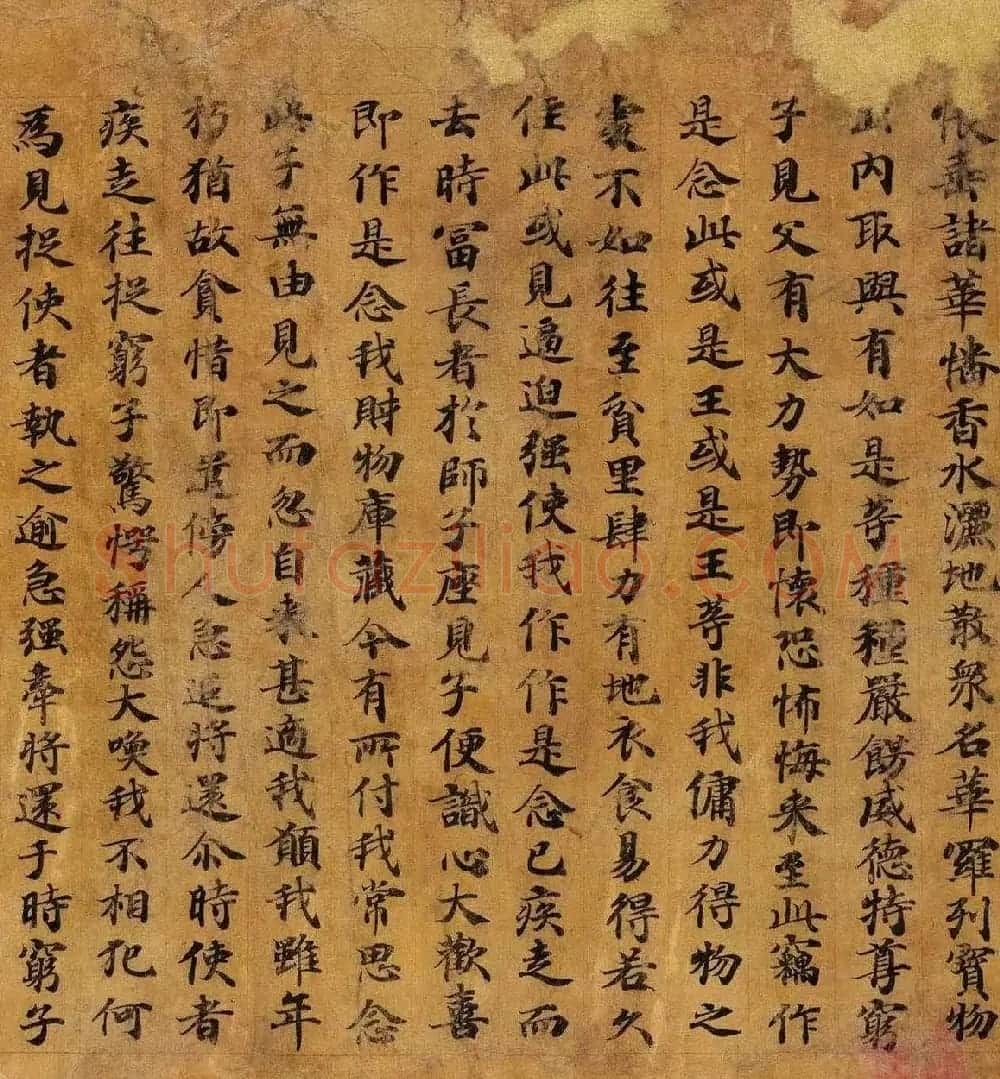 帳垂諸華幡香水灑地散衆名華羅列寶物
出內取與有如是等種種嚴餝威德特尊窮
子見父有大力勢即懷恐怖悔来至此竊作
是念此或是王或是王等非我傭力得物之
處不如往至貧里肆力有地衣食易得若久
住此或見逼迫强使我作作是念已疾走而
去時冨長者於師子座見子便識心大歡喜
即作是念我財物庫藏今有所付我常思念
此子無由見之而忽自来甚適我願我雖年
朽猶故貪惜即遣傍人急追將還尒時使者
疾走往捉窮子驚愕稱怨大喚我不相犯何
爲見捉使者執之逾急强牽將還于時窮子
Shufaziliao.COM